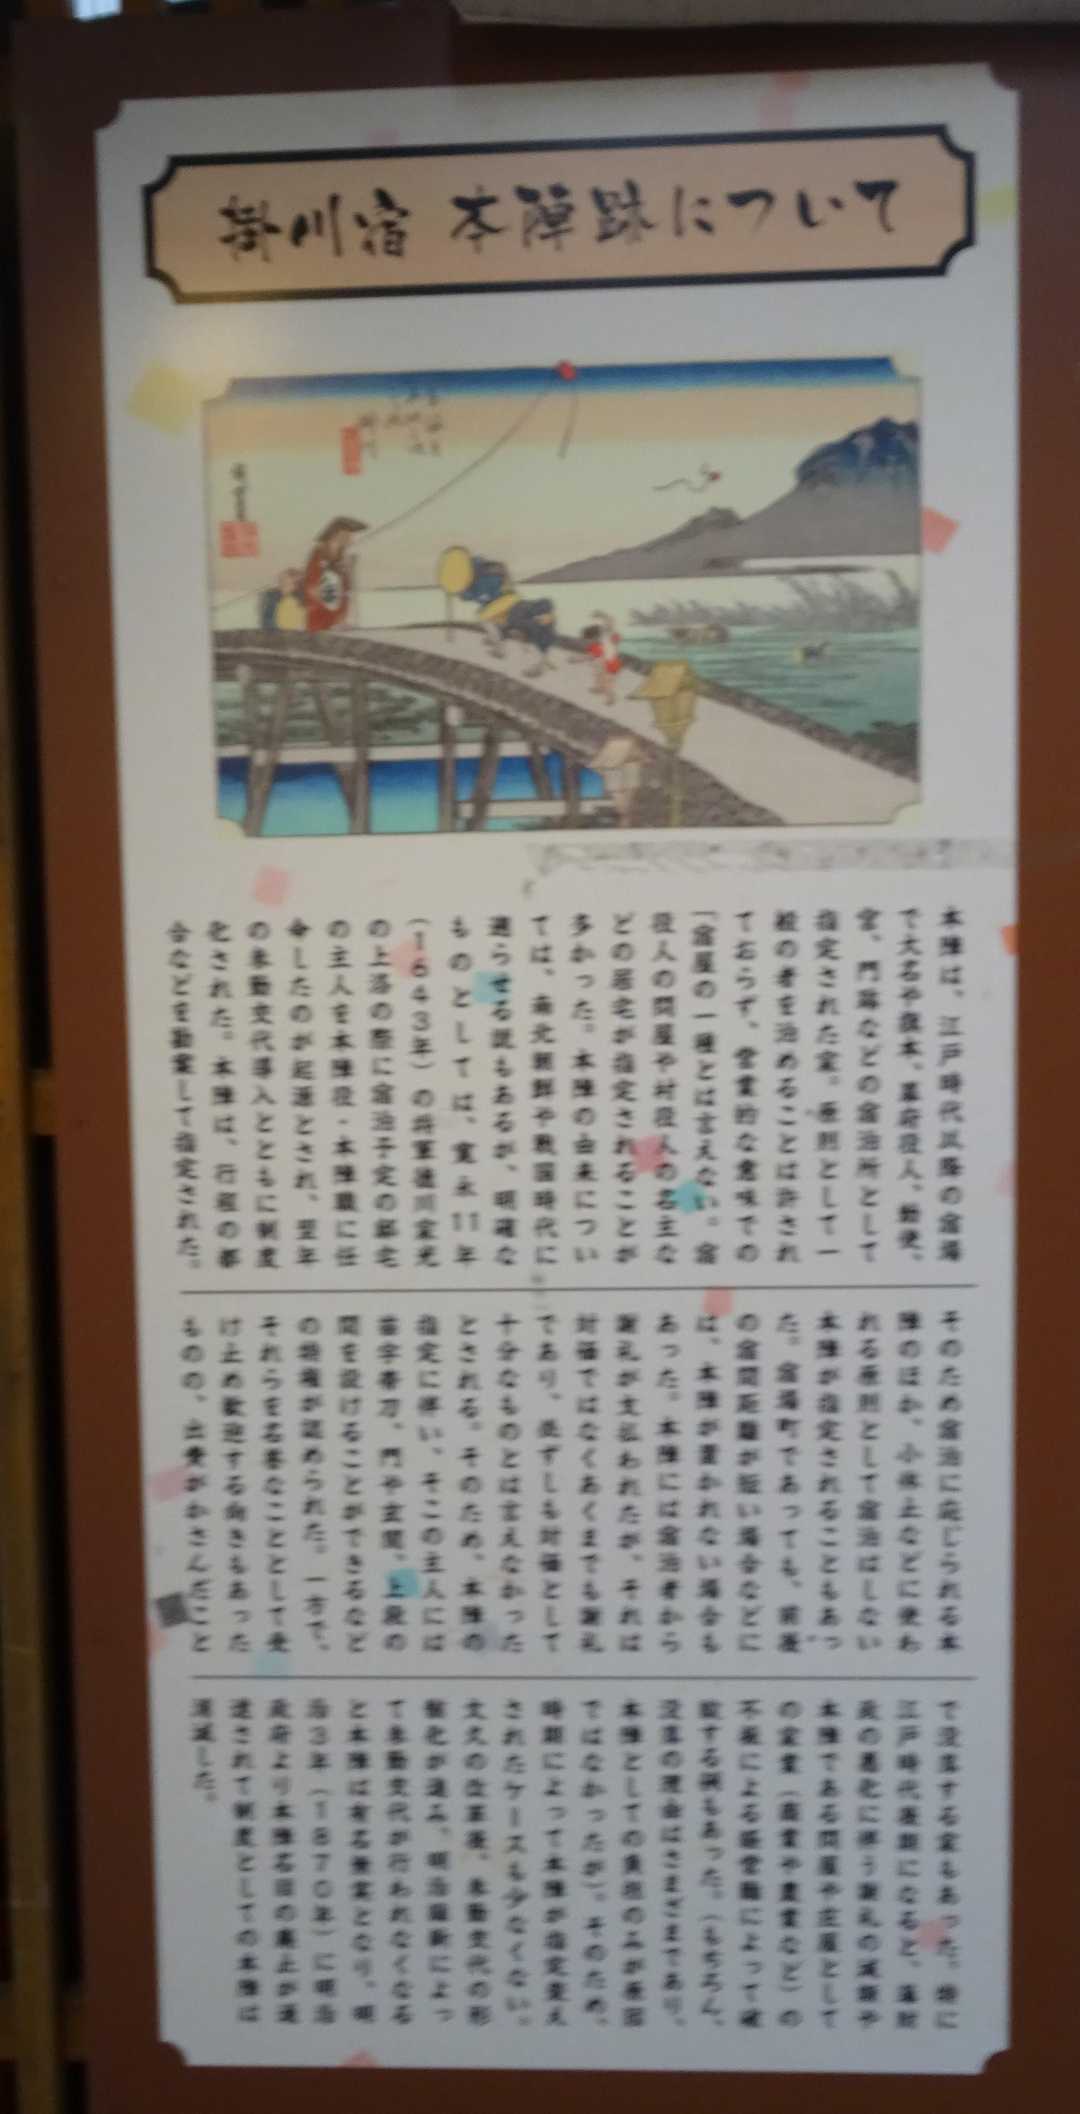 掛川宿 本陣跡について
本陣は、江戸時代以降の宿場
で大名や旗本、幕府役人、勅使、
宮、門跡などの宿泊所として
指定された家。原則として一
般の者を泊めることは許され
ておらず、営業的な意味での
「宿屋の一種とは言えない。宿
役人の問屋や村役人の名主な
どの居宅が指定されることが
多かった。本陣の由来につい
ては、南北朝鮮や戦国時代に
遡らせる説もあるが、明確な
ものとしては、寛永11年
(1643年)の将軍徳川家光
の上洛の際に宿泊予定の邸宅
の主人を本陣役・本陣職に任
命したのが起源とされ、翌年
の参勤交代導入とともに制度
化された。本陣は、行程の都
合などを勘案して指定された。
そのため宿泊に応じられる本
陣のほか、小休止などに使わ
れる原則として宿泊はしない
本陣が指定されることもあっ
た。宿場町であっても、前後
の宿間距離が短い場合などに
は、本陣が置かれない場合も
あった。本陣には宿泊者から
謝礼が支払われたが、それは
対価ではなくあくまでも謝礼
であり、必ずしも対価として
十分なものとは言えなかった
とされる。そのため、本陣の
指定に伴い、そこの主人には
苗字帯刀、門や玄関、上段の
間を設けることができるなど
の特権が認められた。一方で、
それらを名誉なこととして受
け止め歓迎する向きもあった
ものの、出費がかさんだこと
で没落する家もあった。特に
江戸時代後期になると、藩財
政の悪化に伴う謝礼の減額や
本陣である問屋や庄屋として
の家業(商業や農業など)の
不振による経営難によって破
綻する例もあった。(もちろん、
没落の理由はさまざまであり、
本陣としての負担のみが原因
ではなかったが)。そのため、
時期によって本陣が指定変え
されたケースも少なくない。
文久の改革後、参勤交代の形
骸化が進み、明治維新によっ
て参勤交代が行われなくなる
と本陣は有名無実となり、明
治3年(1870年)に明治
政府より本陣名目の廃止が通
達されて制度としての本陣は
消滅した。